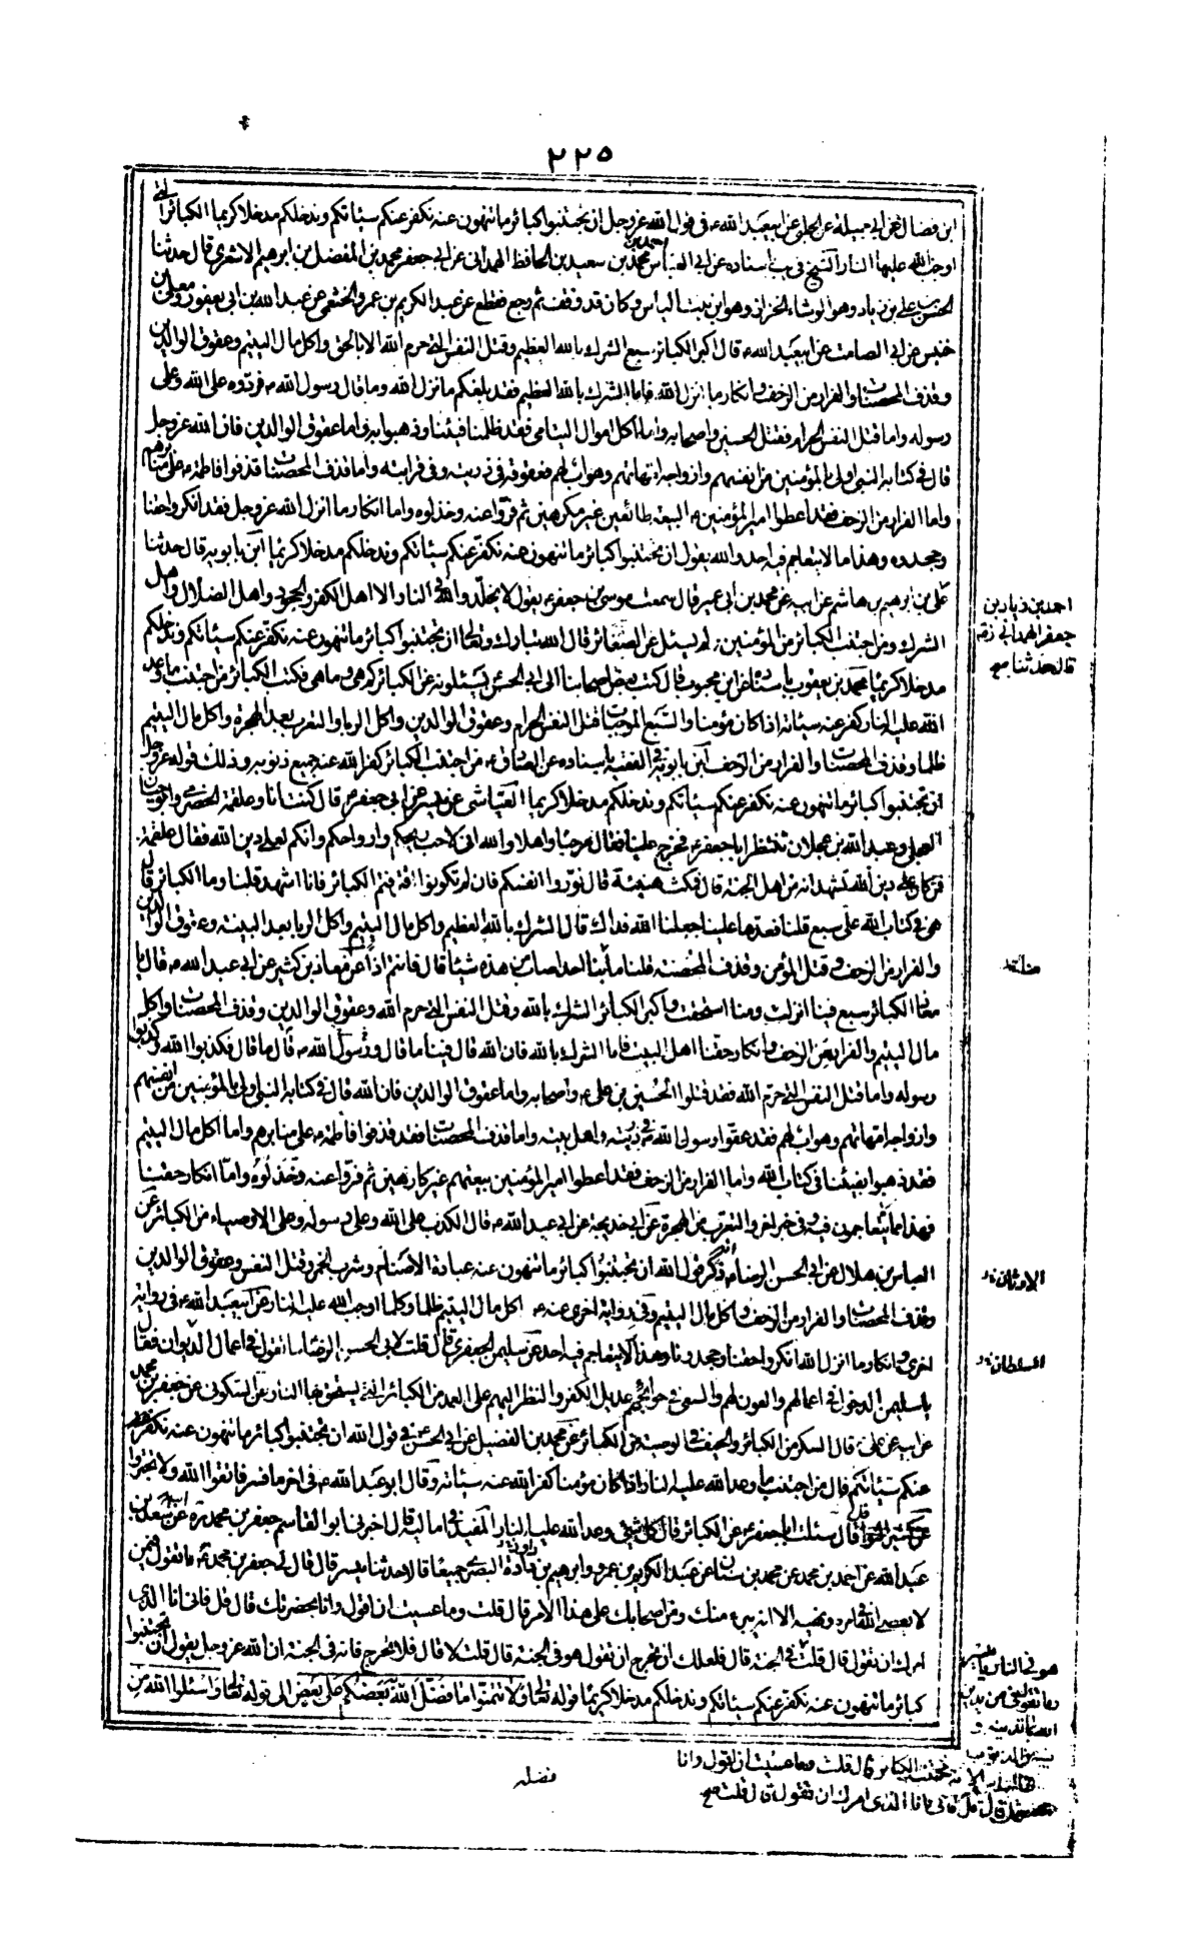 ٢٢٥
ابن فضال عن ابي جميلة عن الحلبي عن ابيعبد الله ع في قول الله عز وجل ان تجتنبوا كبائر ما تنهون عنه نكفر عنكم سيئاتكم وندخلكم مدخلا كريما الكبائر التي
اوجب الله عليها النار الشيخ في يب باسناده عن ابي العباس احمد بن محمد بن سعيد بن الحافظ الهمداني عن ابي جعفر محمد بن المفضل بن ابرهيم الاشعري قال حدثنا
الحسن بن علي بن زياد وهو الوشاء الخزاز وهو ابن بنت الياس وكان قد وقف ثم رجع فقطع عن عبد الكريم بن عمرو الخثعمي عن عبد الله بن ابي يعفور ومعلى بن
خنيس عن ابي الصامت عن ابيعبد الله ع قال اكبر الكبائر سبع الشرك بالله العظيم وقتل النفس التي حرم الله الا بالحق واكل مال اليتيم وعقوق الوالدين
وقذف المحصنات والفرار من الزحف وانكار ما انزل الله فاما الشرك بالله العظيم فقد بلغكم ما نزل الله وما قال رسول الله ص فردوه على الله وعلى
رسوله واما قتل النفس الحرام فقتل الحسين واصحابه واما اكل اموال اليتامى فقد ظلمنا فيئنا وذهبوا به واما عقوق الوالدين فان الله عز وجل
قال في كتابه النبي اولى بالمؤمنين من انفسهم وازواجه امهاتهم وهو اب لهم فعقوقه في ذريته وفي قرابته واما قذف المحصنات قذفوا فاطمة ع على منابرهم
واما الفرار من الزحف فقد اعطوا امير المؤمنين ع البيعة طائعين غير مكرهين ثم فروا عنه وخذلوه واما انكار ما انزل الله عز وجل فقد انكروا حقنا
وجحدوه وهذا ما لا يتعاجم فيه احد والله يقول ان تجتنبوا كبائر ما تنهون عنه نكفر عنكم سيئاتكم وندخلكم مدخلا كريما ابن بابويه قال حدثنا
علي بن ابرهيم بن هاشم عن ابيه عن محمد بن ابي عمير قال سمعت موسى بن جعفر ع يقول لا يخلد والله في النار الا اهل الكفر والجحود واهل الضلال واهل
الشرك ومن اجتنب الكبائر من المؤمنين لم يسئل عن الصغائر قال الله تبارك وتعالى ان تجتنبوا كبائر ما تنهون عنه نكفر عنكم سيئاتكم وندخلكم
مدخلا كريما محمد بن يعقوب باسناده عن ابن محبوب قال كتب بعض اصحابنا الى ابي الحسن ع يسئلونه عن الكبائر كم هي وما هي فكتب الكبائر من اجتنب ما وعد
الله عليه النار كفر عنه سيئاته اذا كان مؤمنا والسبع الموجبات قتل النفس الحرام وعقوق الوالدين واكل الربا والتعرب بعد الهجرة واكل مال اليتيم
ظلما وقذف المحصنات والفرار من الزحف ابن بابويه في الفقيه باسناده عن الصادق ع من اجتنب الكبائر كفر الله عنه جميع ذنوبه وذلك قوله عز وجل
ان تجتنبوا كبائر ما تنهون عنه نكفر عنكم سيئاتكم وندخلكم مدخلا كريما العياشي عن ميسر عن ابي جعفر ع قال كنت انا وعلقمة الحضرمي وابو حسان
العجلي وعبد الله بن عجلان ننتظر ابا جعفر ع فخرج علينا فقال مرحبا واهلا والله اني لاحب ريحكم وارواحكم وانكم لعلى دين الله فقال علقمة
فمن كان على دين الله تشهد انه من اهل الجنة قال فمكث هنيئة قال نوروا انفسكم فان لم تكونوا اقترفتم الكبائر فانا اشهد قلنا وما الكبائر قال
هي في كتاب الله على سبع قلنا فعدها علينا جعلنا الله فداك قال الشرك بالله العظيم واكل مال اليتيم واكل الربا بعد البينة وعقوق الوالدين
والفرار من الزحف وقتل المؤمن وقذف المحصنة قلنا ما منا احد اصاب من هذه شيئا قال فانتم اذا عن معاذ بن كثير عن ابي عبد الله ع قال يا
معاذ الكبائر سبع فينا انزلت ومنا استحقت واكبر الكبائر الشرك بالله وقتل النفس التي حرم الله وعقوق الوالدين وقذف المحصنات واكل
مال اليتيم والفرار من الزحف وانكار حقنا اهل البيت فاما الشرك بالله فان الله قال فينا ما قال ورسول الله ص قال ما قال فكذبوا الله وكذبوا
رسوله واما قتل النفس التي حرم الله فقد قتلوا الحسين بن علي ع واصحابه واما عقوق الوالدين فان الله قال في كتابه النبي اولى بالمؤمنين من انفسهم
وازواجه امهاتهم وهو اب لهم فقد عقوا رسول الله ص في ذريته واهل بيته واما قذف المحصنات فقد قذفوا فاطمة ع على منابرهم واما اكل مال اليتيم
فقد ذهبوا بفيئنا في كتاب الله واما الفرار من الزحف فقد اعطوا امير المؤمنين بيعتهم غير كارهين ثم فروا عنه وخذلوه واما انكار حقنا
فهذا مما لا يتعاجمون فيه وفي خبر اخر والتعرب من الهجرة عن ابي خديجة عن ابي عبد الله ع قال الكذب على الله وعلى رسوله وعلى الاوصياء من الكبائر عن
العباس بن هلال عن ابي الحسن الرضا ع انه ذكر قول الله ان تجتنبوا كبائر ما تنهون عنه عبادة الاصنام وشرب الخمر وقتل النفس وعقوق الوالدين
وقذف المحصنات والفرار من الزحف واكل مال اليتيم وفي رواية اخرى عنه ع اكل مال اليتيم ظلما وكلما اوجب الله عليه النار عن ابيعبد الله ع في رواية
اخرى وانكار ما انزل الله انكروا حقنا وجحدونا وهذا لا يتعاجم فيه احد عن سليمن الجعفري قال قلت لابي الحسن الرضا ما تقول في اعمال الديوان فقال
يا سليمن الدخول في اعمالهم والعون لهم والسعي في حوائجهم عديل الكفر والنظر اليهم على العمد من الكبائر التي يستحق بها النار عن السكوني عن جعفر بن محمد
عن ابيه عن علي ع قال السكر من الكبائر والحيف في الوصية من الكبائر عن محمد بن الفضيل عن ابي الحسن ع في قول الله ان تجتنبوا كبائر ما تنهون عنه نكفر
عنكم سيئاتكم قال من اجتنب ما وعد الله عليه النار اذا كان مؤمنا كفر الله عنه سيئاته وقال ابو عبد الله ع في اخر ما فسر فاتقوا الله ولا تجتروا
عن كثير النوا قال سئلت ابا جعفر ع عن الكبائر قال كل شئ وعد الله عليه النار المفيد في اماليه قال اخبرني ابو القاسم جعفر بن محمد ره عن ابيه عن سعد بن
عبد الله عن احمد بن محمد عن محمد بن سنان عن عبد الكريم بن عمرو وابرهيم بن داحة البصري جميعا قالا حدثنا ميسر قال قال لي جعفر بن محمد ع ما تقول فيمن
لا يعصي الله في امره ونهيه الا انه يبرء منك ومن اصحابك على هذا الامر قال قلت وما عسيت ان اقول وانا بحضرتك قال قل فاني انا الذي
امرك ان تقول قال قلت في الجنة قال فلعلك ان تحرج ان تقول هو في الجنة قال قلت لا قال فلا تحرج فانه في الجنة ان الله عز وجل يقول ان تجتنبوا
كبائر ما تنهون عنه نكفر عنكم سيئاتكم وندخلكم مدخلا كريما قوله تعالى ولا تتمنوا ما فضل الله بعضكم على بعض الى قوله تعالى واسئلوا الله من
فضله
احمد بن زياد بن
جعفر الهمداني رضه
قال حدثنا صح
الاوثان خ
السلطان خ
هو في النار يا ميسر
وما تقول في من يدين
الله بما تدينه و
هذه الا انه يجتنب الكبائر قال قلت وما عسيت ان اقول وانا
بحضرتك قال قل فاني انا الذي امرك ان تقول قال قلت صح